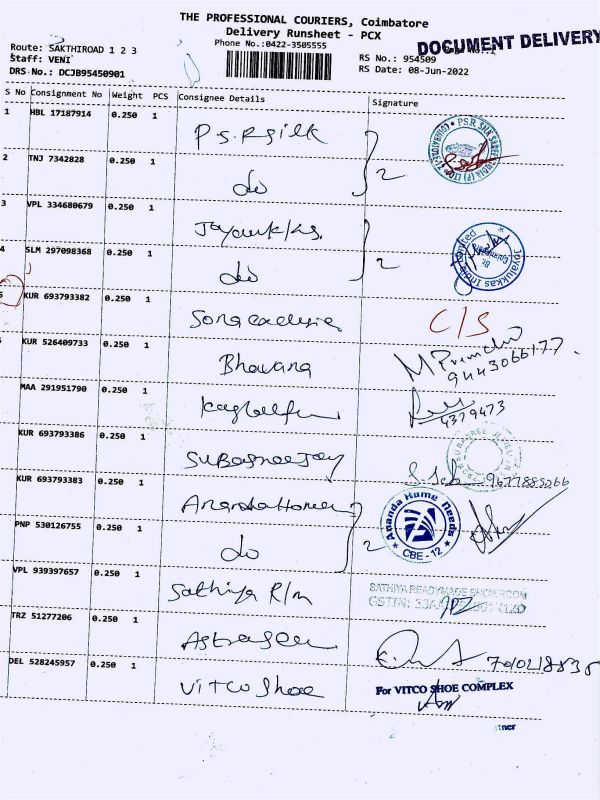 THE PROFESSIONAL COURIERS, Coimbatore
Delivery Runsheet - PCX
Phone No.:0422-3505555
DOCUMENT DELIVERY
Route: SAKTHIROAD 1 2 3
Staff: VENI
DRS No.: DCJB95450901
RS No.: 954509
RS Date: 08-Jun-2022
S No Consignment No Weight PCS Consignee Details Signature
1 HBL 17187914 0.250 1 P.S.R silk
2 TNJ 7342828 0.250 1 do 2
3 VPL 334680679 0.250 1
4 SLM 297098368 0.250 1 do 2
5 KUR 693793382 0.250 1 C/S
KUR 526409733 0.250 1 Bhavana
9443066177
MAA 291951790 0.250 1 4379473
KUR 693793386 0.250 1 Subasree Jay
KUR 693793383 0.250 1
Ananda Home Needs
CBE-12
PNP 530126755 0.250 1 do 2
VPL 939397657 0.250 1 Sathiya R/m SATHIYA READYMADE SHOWROOM
TRZ 51277206 0.250 1
DEL 528245957 0.250 1 Vitco Shoe For VITCO SHOE COMPLEX